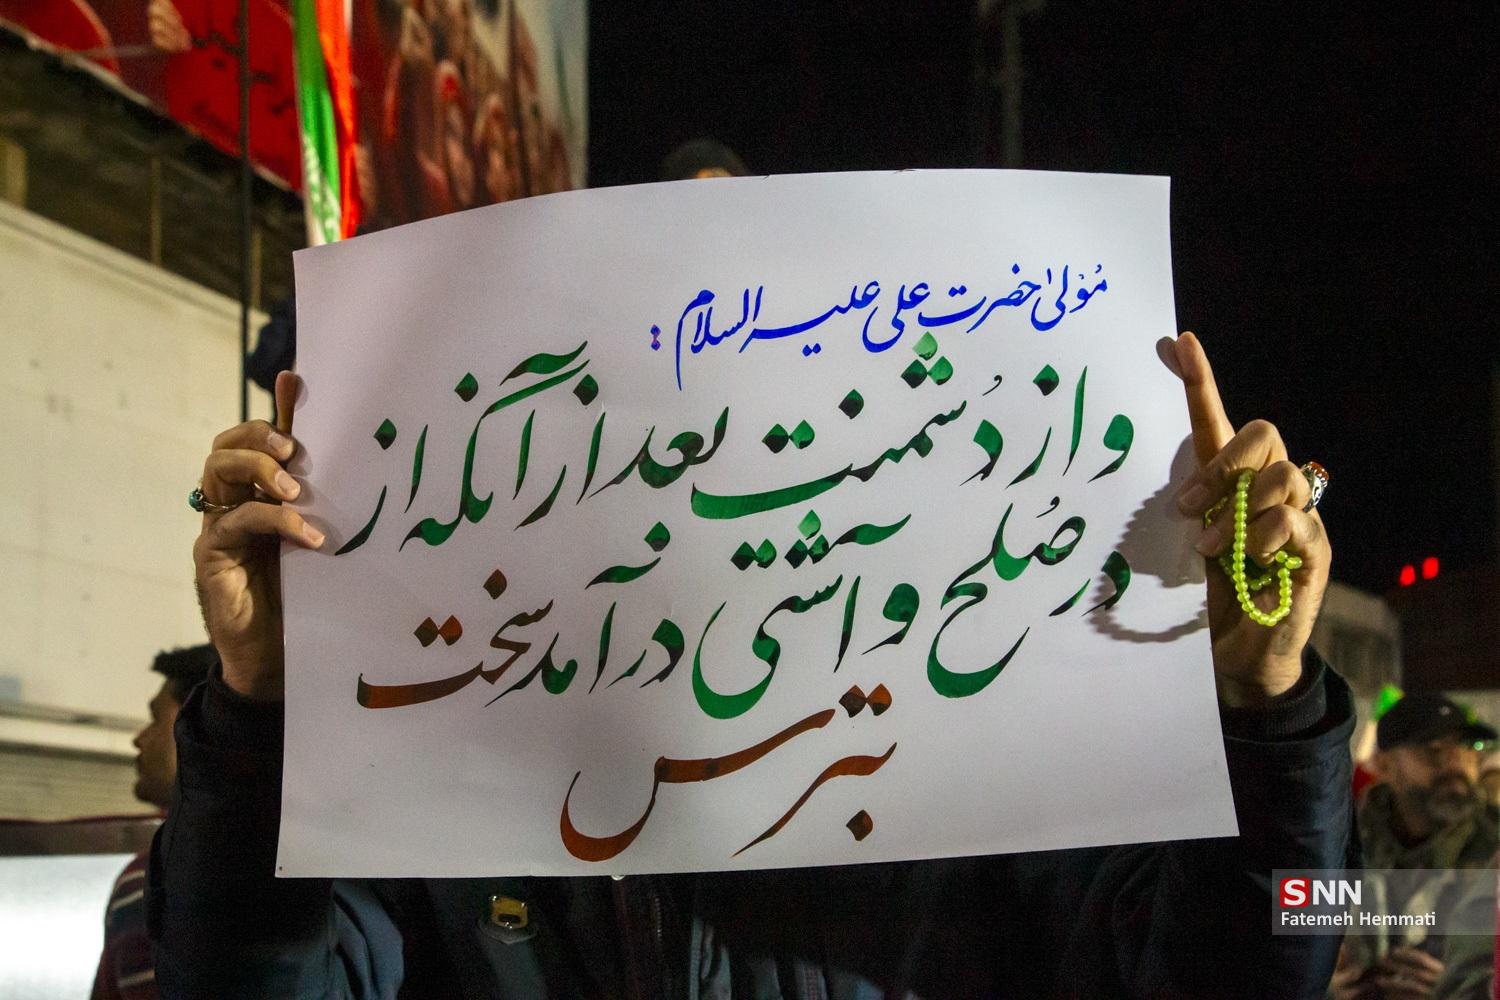 مُوْلیٰ حضرت علی علیه السلام :
و از دُشمنت بعد از آنکه از
در صُلح و آشتی در آمد سخت
بترس
SNN
Fatemeh Hemmati